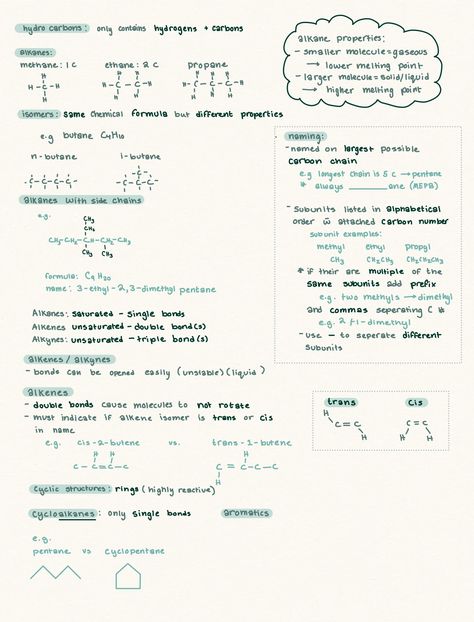 hydrocarbons: only contains hydrogens + carbons
alkanes:
methane: 1 C
ethane: 2 C
propane
H
H - C - H
H
H H
H - C - C - H
H H
H H H
H - C - C - C - H
H H H
isomers: same chemical formula but different properties
e.g butane C4H10
n-butane
i-butane
- C - C - C - C -
- C -
- C - C - C -
alkanes with side chains
e.g.
CH3
CH2
CH3-CH2-CH-CH-CH3
CH3 CH3
formula: C9H20
name: 3-ethyl-2,3-dimethyl pentane
Alkanes: saturated - single bonds
Alkenes unsaturated - double bond(s)
Alkynes: unsaturated - triple bond(s)
alkenes / alkynes
- bonds can be opened easily (unstable) (liquid)
alkenes
- double bonds cause molecules to not rotate
- must indicate if alkene isomer is trans or cis
in name
e.g. cis-2-butene vs. trans-1-butene
H H
C - C = C - C
H
C = C - C - C
H
cyclic structures: rings (highly reactive)
cycloalkanes: only single bonds
aromatics
e.g.
pentane vs cyclopentane
alkane properties:
- smaller molecule = gaseous
→ lower melting point
- larger molecule = solid/liquid
→ higher melting point
naming:
- named on largest possible
carbon chain
e.g longest chain is 5 C → pentane
* always ______ane (MEPB)
- Subunits listed in alphabetical
order w̄ attached carbon number
subunit examples:
methyl ethyl propyl
CH3 CH2CH3 CH2CH2CH3
* if their are multiple of the
same subunits add prefix
e.g. two methyls → dimethyl
and commas seperating C #
e.g. 2,1-dimethyl
- use - to seperate different
subunits
trans
cis
H
C = C
H
C = C
H H